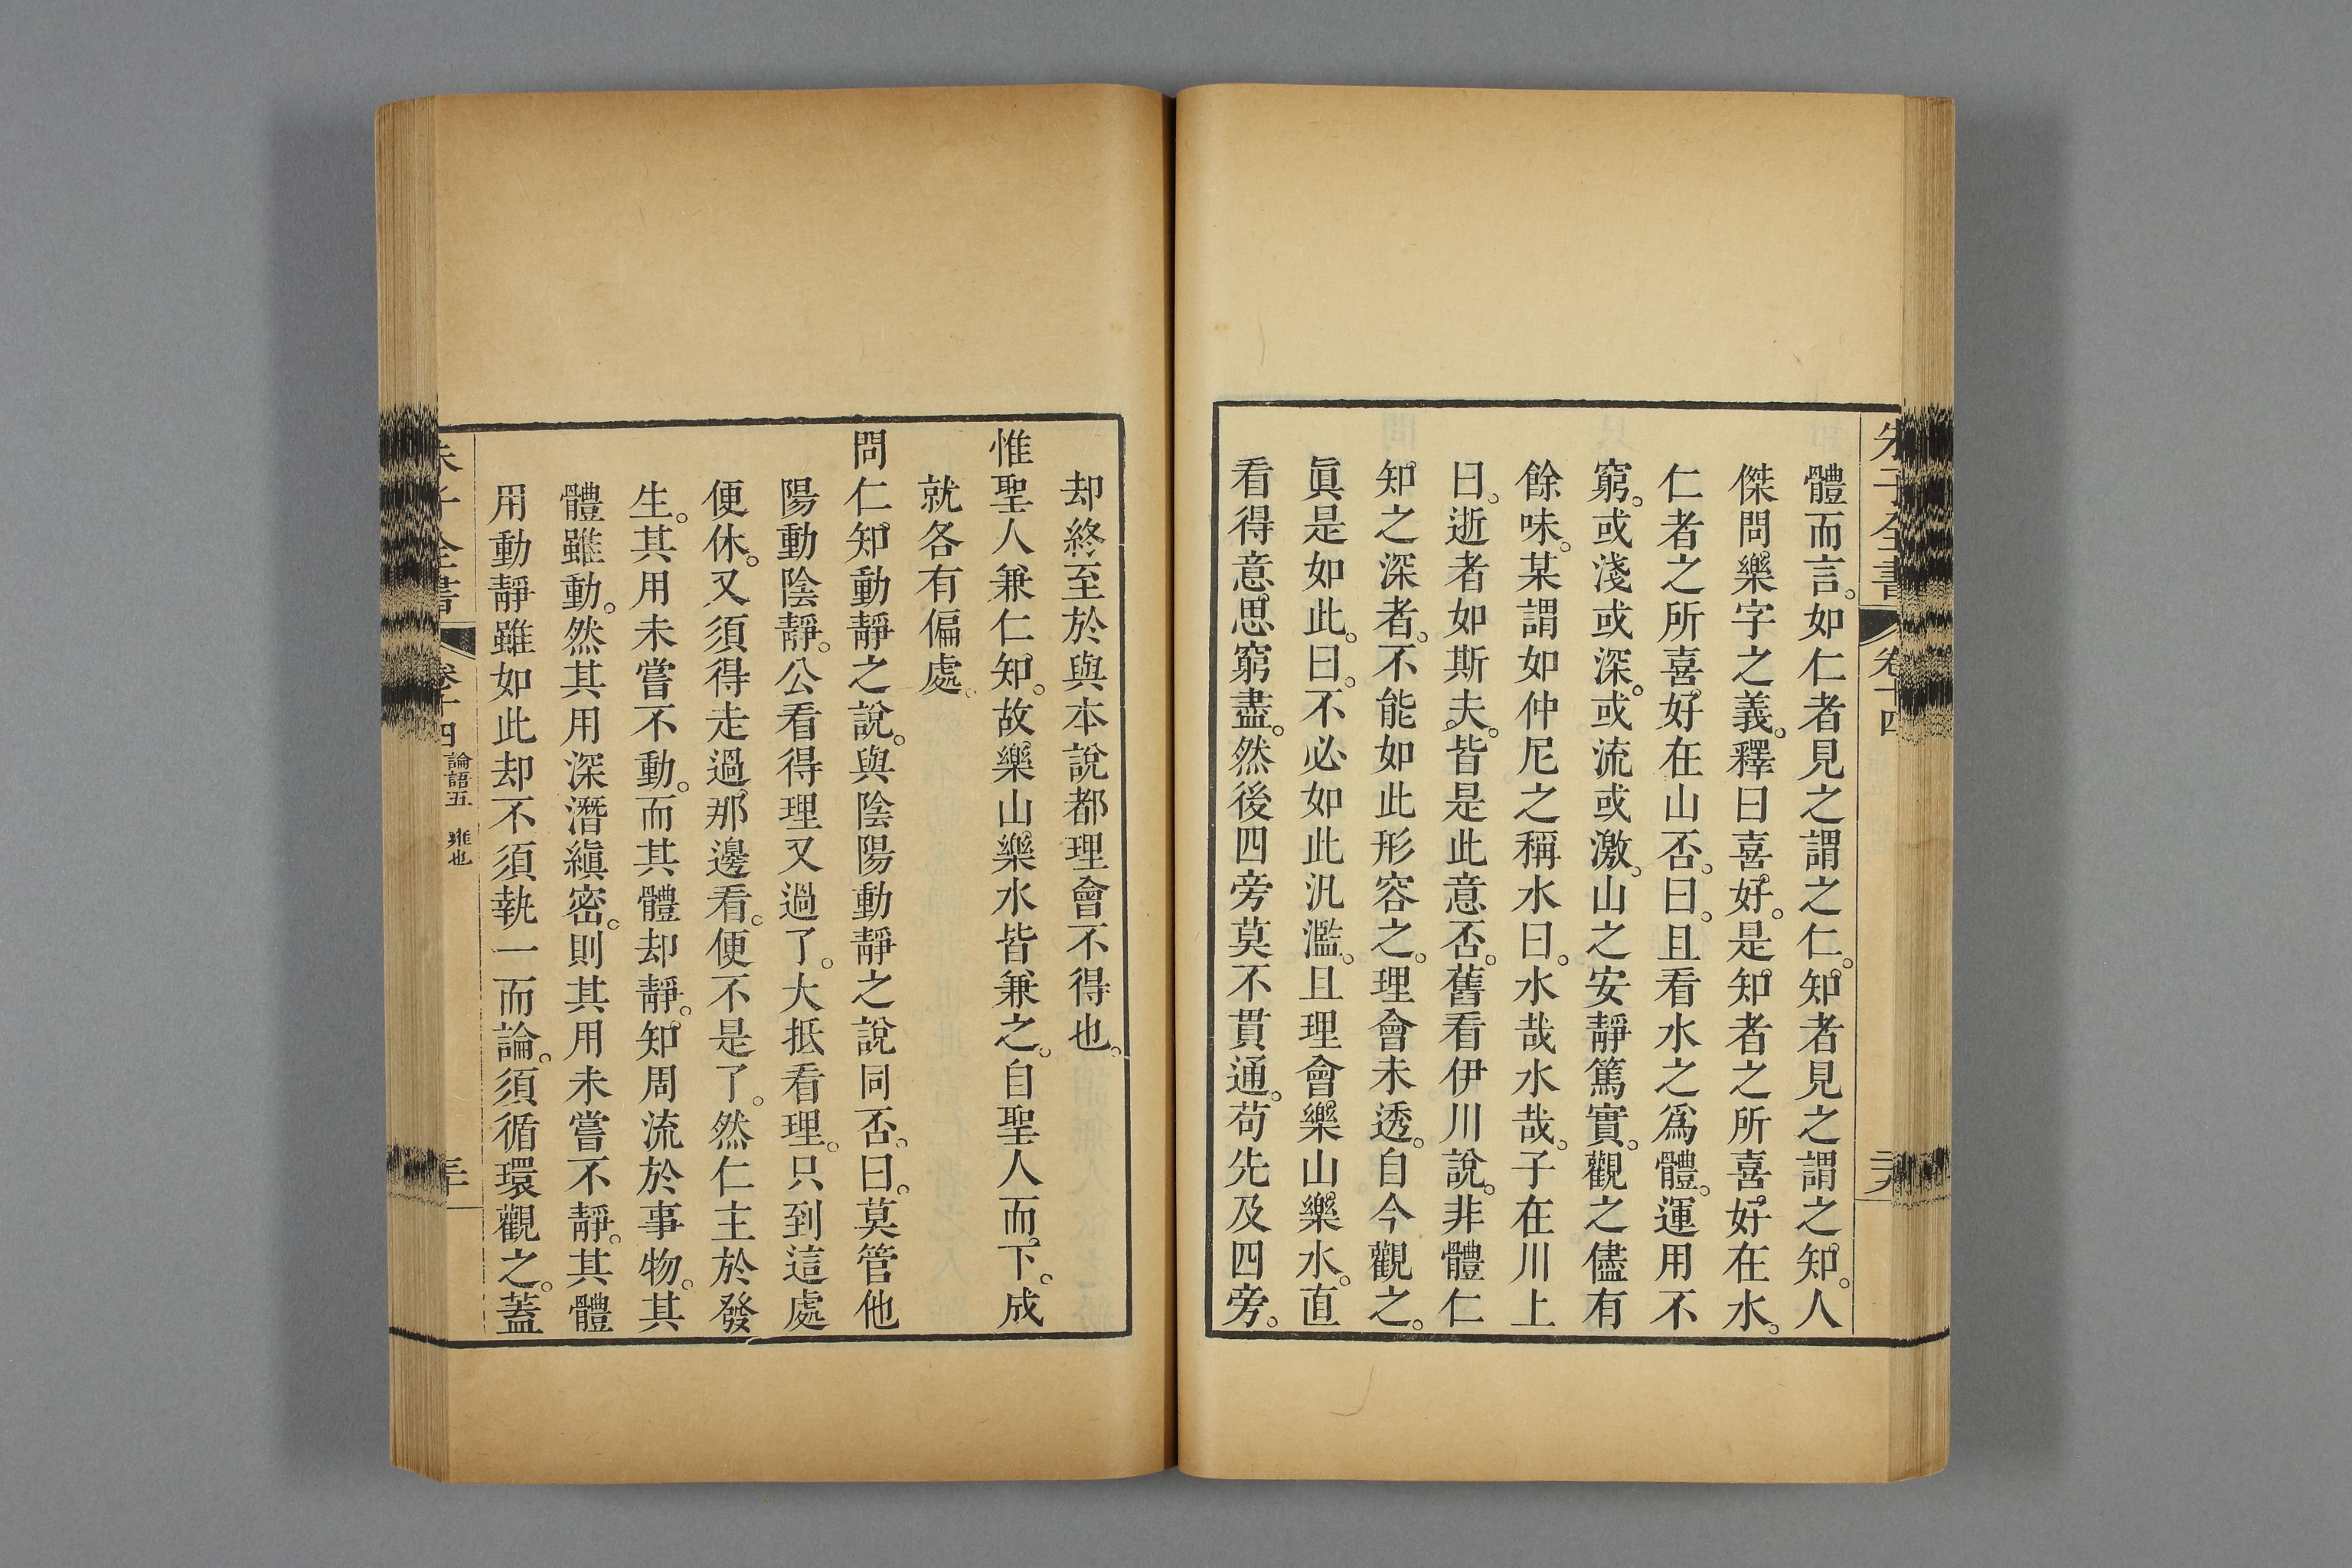 朱子全書 卷十四
體而言。如仁者見之謂之仁。知者見之謂之知。人
傑問樂字之義。釋曰喜好。是知者之所喜好在水。
仁者之所喜好在山否。曰。且看水之爲體。運用不
窮。或淺或深。或流或激。山之安靜篤實。觀之儘有
餘味。某謂如仲尼之稱水曰。水哉水哉。子在川上
曰。逝者如斯夫。皆是此意否。舊看伊川說。非體仁
知之深者。不能如此形容之。理會未透。自今觀之。
眞是如此。曰。不必如此汎濫。且理會樂山樂水。直
看得意思窮盡。然後四旁莫不貫通。苟先及四旁。
却終至於與本說都理會不得也。
惟聖人兼仁知。故樂山樂水皆兼之。自聖人而下。成
就各有偏處。
問仁知動靜之說。與陰陽動靜之說同否。曰。莫管他
陽動陰靜。公看得理又過了。大抵看理。只到這處
便休。又須得走過那邊看。便不是了。然仁主於發
生。其用未嘗不動。而其體却靜。知周流於事物。其
體雖動。然其用深潛縝密。則其用未嘗不靜。其體
用動靜雖如此却不須執一而論。須循環觀之。蓋
子全書 卷十四 論語五 雍也